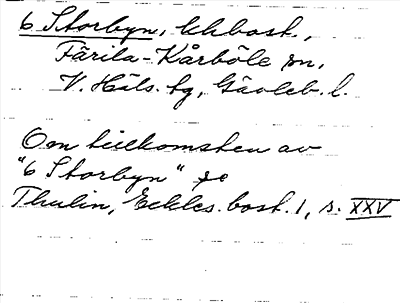 6 Storbyn, ekbost.,
Färila-Kårböle sn,
V. Häls. tg, Gävleb. l.
Om tillkomsten av
"6 Storbyn" se
Thulin, Eckles. bost. 1, s. XXV